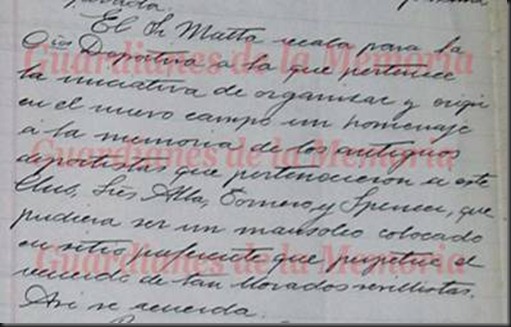 El Sr Matta recaba para la
Oios Deportiva a la que pertenece
la iniciativa de organizar y erigir
en el nuevo campo un homenaje
a la memoria de los antiguos
deportistas que pertenecieron a este
Club, Sres Alba, Tornero y Spencer, que
pudiera ser un mausoleo colocado
en sitio preferente que perpetue el
recuerdo de tan llorados sevillistas.
Asi se acuerda.
Guardianes de la Memoria
Guardianes de la Memoria
Guardianes de la Memoria